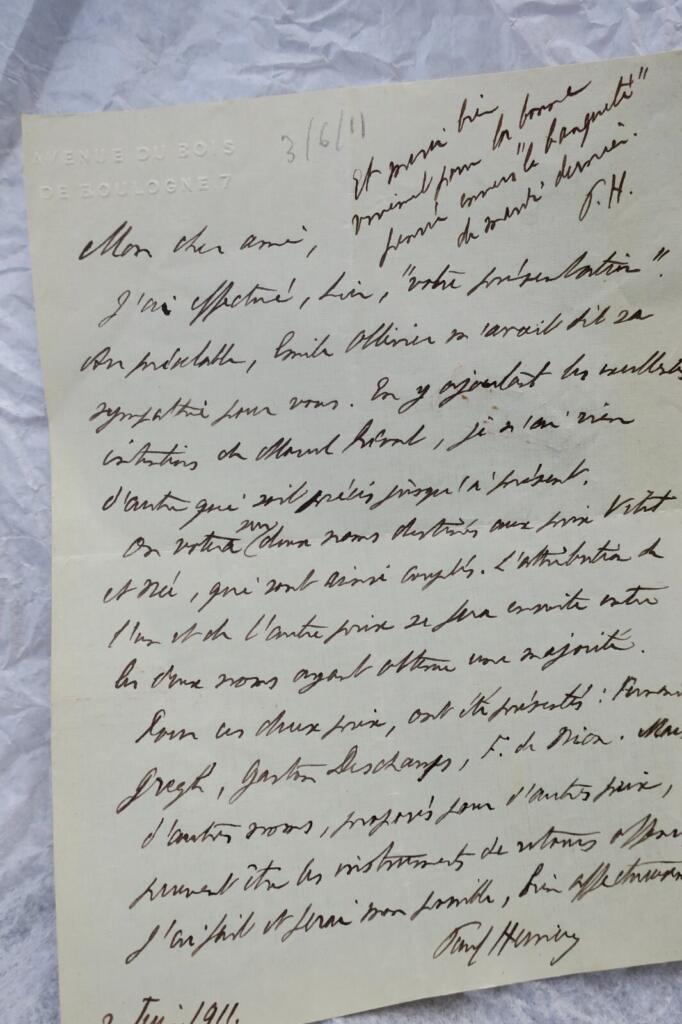 AVENUE DU BOIS
DE BOULOGNE. 7
3/6/11
Et merci bien
vraiment pour la bonne
pensée envers "le banqueté"
de mardi dernier.
P. H.
Mon cher ami,
J'ai effectué, hier, "votre présentation".
Au préalable, Emile Ollivier m'avait dit sa
sympathie pour vous. En y ajoutant les excellentes
intentions de Marcel Prévost, je n'ai rien
d'autre qui soit précis jusqu'à présent.
On votera sur deux noms destinés aux prix Vitet
et Née, qui sont ainsi couplés. L'attribution de
l'un et de l'autre prix se fera ensuite entre
les deux noms ayant obtenu une majorité.
Pour ces deux prix, ont été présentés : Fernand
Gregh, Gaston Deschamps, F. de Nion. Mais
d'autres noms, proposés pour d'autres prix,
peuvent être les instruments de retours
J'ai fait et ferai mon possible, bien
Paul Hervieu
2 Juin 1911.